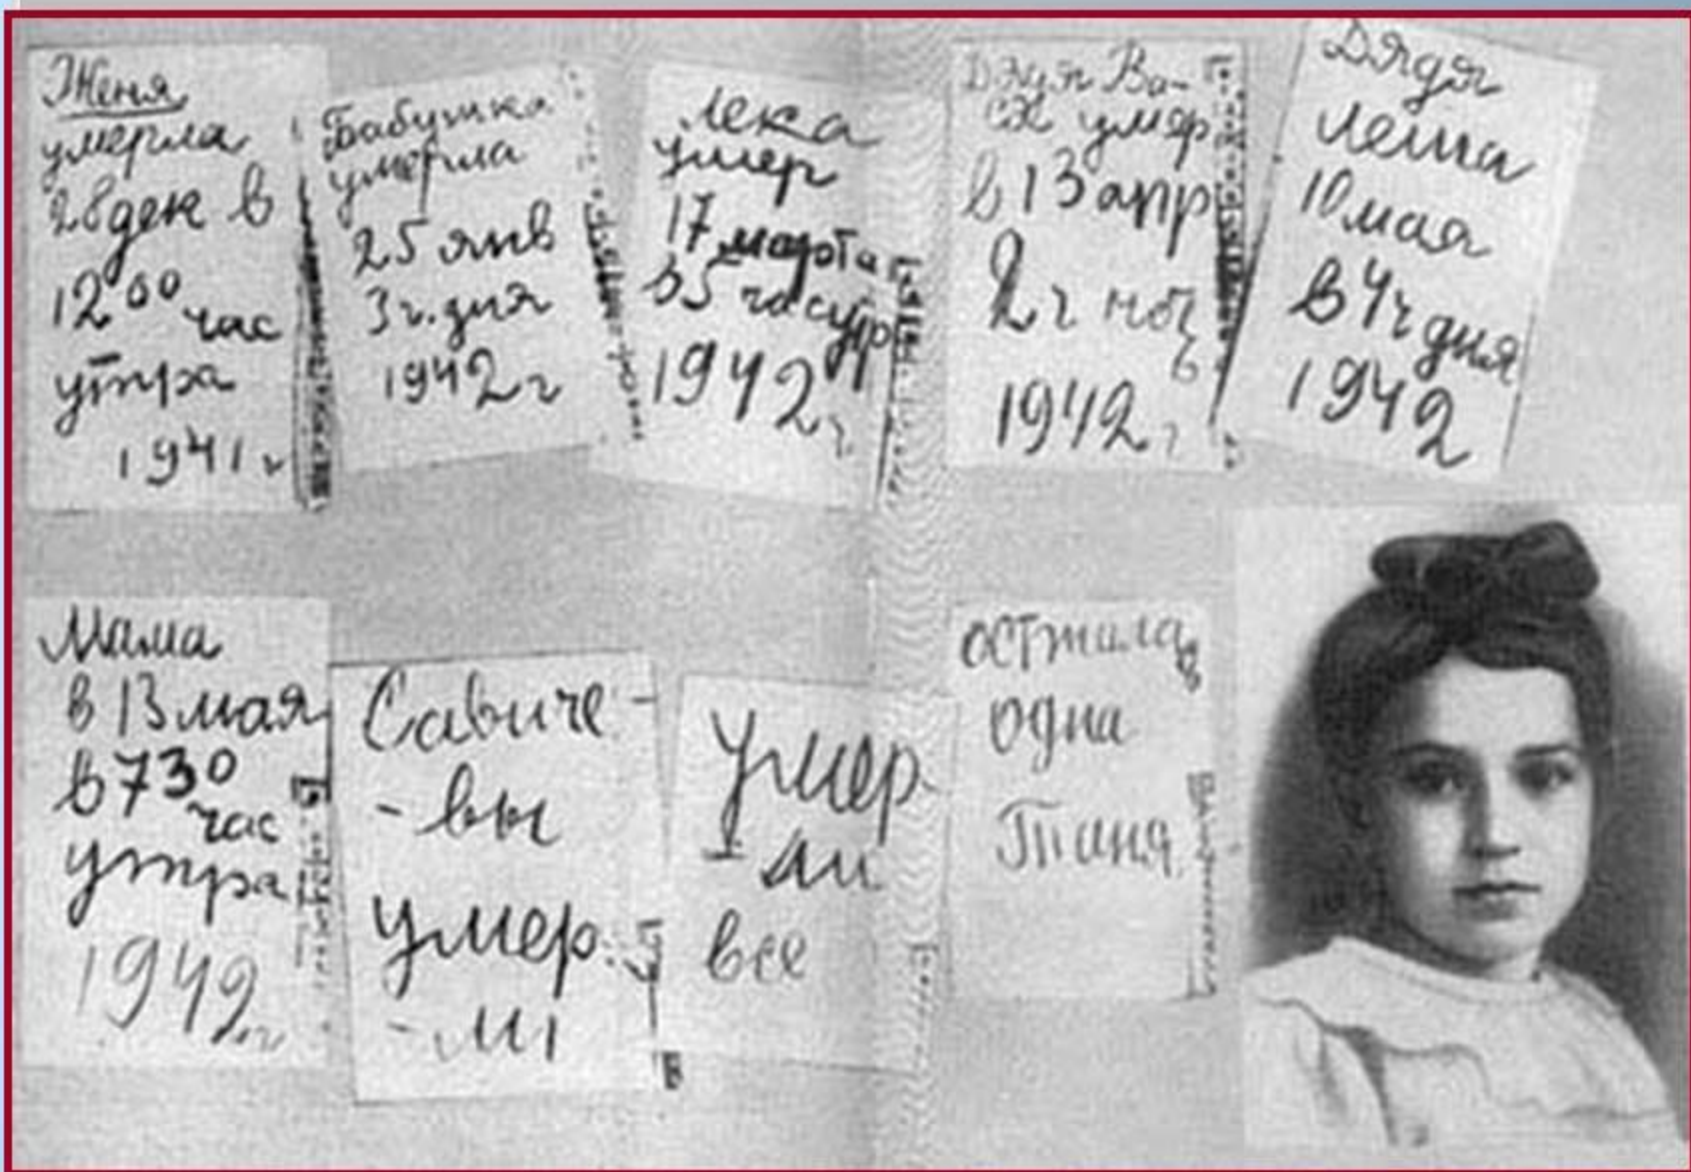 Женя
умерла
28 дек в
12 00 час
утра
1941 г
Бабушка
умерла
25 янв
3 ч. дня
1942 г
Лека
умер
17 марта
в 5 часутр
1942 г
Дядя Ва-
ся умер
в 13 апр
2 ч ноч
ь
1942 г
Дядя
Леша
10 мая
в 4 ч дня
1942
Мама
в 13 мая
в 7 30
час
утра
1942 г
Савиче-
-вы
умер
-ли
Умер
-ли
все
Осталась
одна
Таня